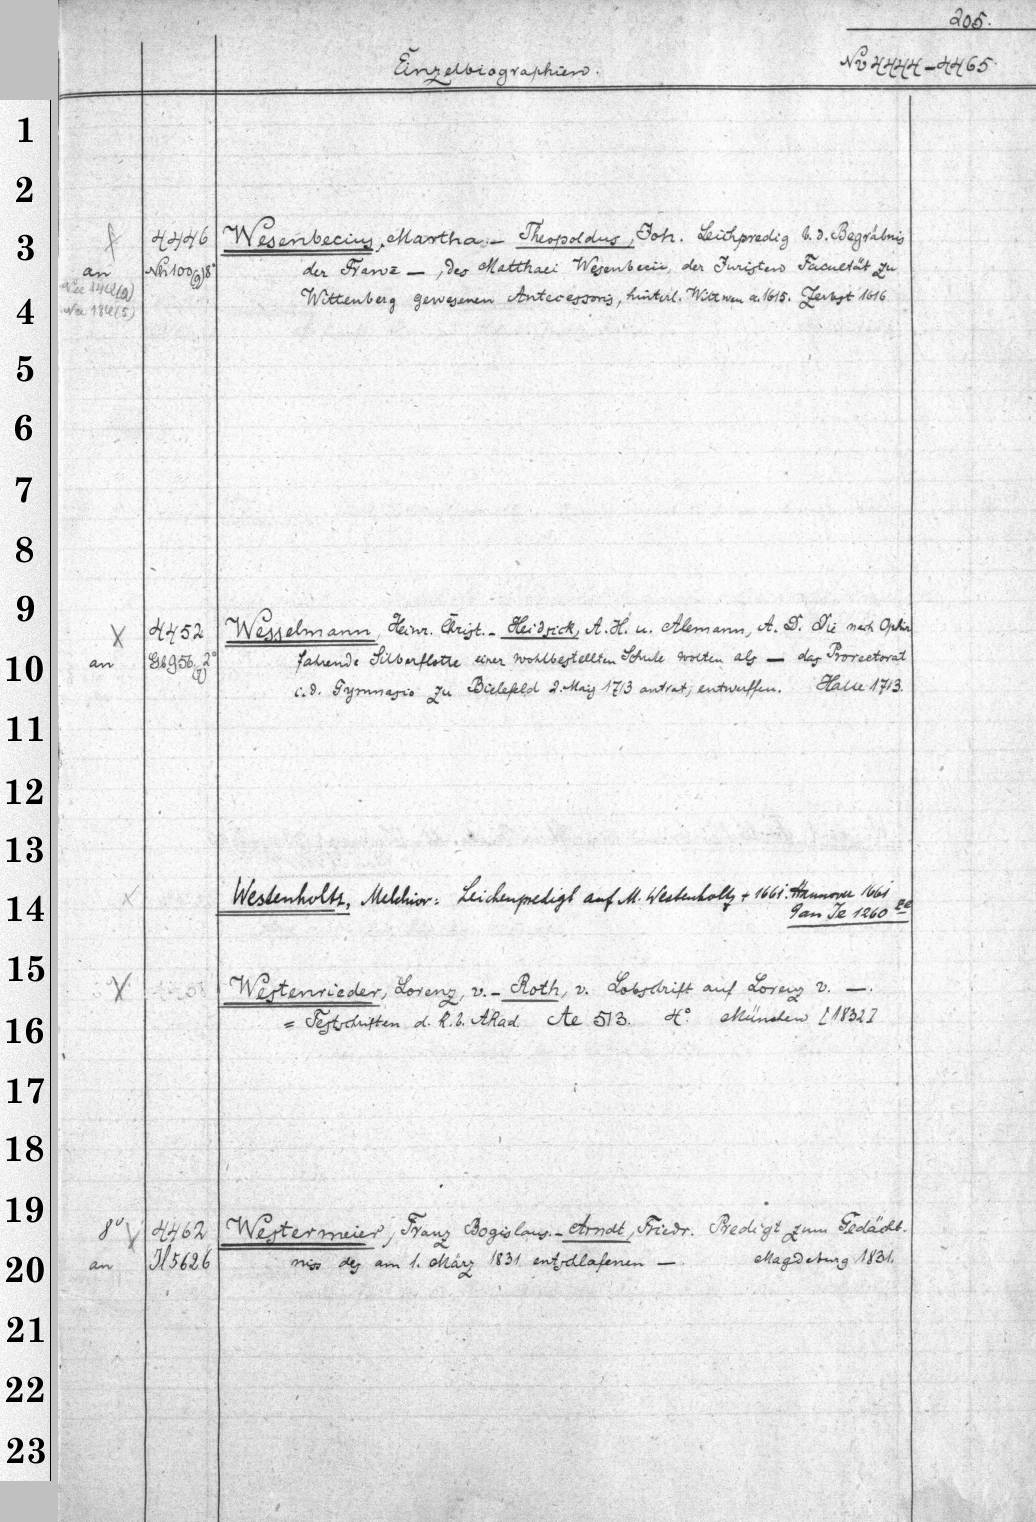 205.
Einzelbiographien.
No 4444-4465.
1
2
3
4446 Wesenbecius, Martha. — Theopoldus, Joh. Leichpredig b. d. Begräbnis
an Nn 100(9)8° der Franz —, des Matthaei Wesenbecii, der Juristen Facultät zu
4
Wittenberg gewesenen Antecessoris, hinterl. Wittwen a. 1615. Zerbst 1616
5
6
7
8
9
4452 Wesselmann, Heinr. Christ. — Heidsick, A. H. u. Alemann, A. D. Die nach Ophir
10
an 2° fahrende Silberflotte einer wohlbestellten Schule wolten als — das Prorectorat
i. d. Gymnasio zu Bielefeld 2. May 1713 antrat, entwerffen. Halle 1713.
11
12
13
14
Westenholtz, Melchior: Leichenpredigt auf M. Westenholtz + 1661. Hannover 1661
9 an Je 1260
15
Westenrieder, Lorenz, v. — Roth, v. Lobschrift auf Lorenz v. —.
16
= Festschriften d. K. b. Akad. Ae 513. 4° München [1832]
17
18
19
8° 4462 Westermeier, Franz Bogislaus. — Arndt, Friedr. Predigt zum Gedächt-
20
an Jl 5626 niss des am 1. März 1831 entschlafenen — Magdeburg 1831.
21
22
23